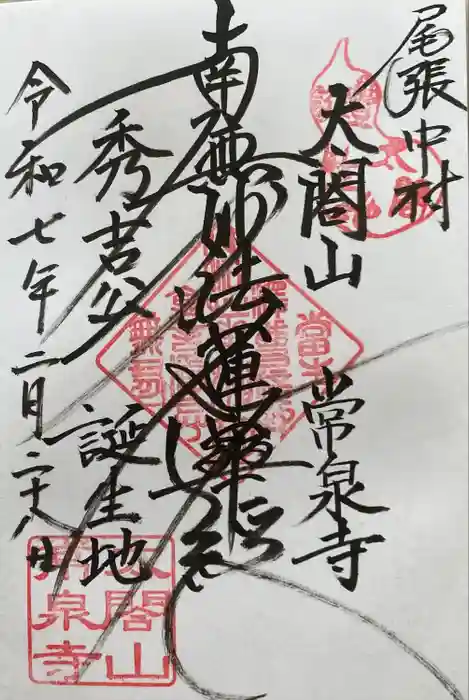 尾張中村
太閤山
常泉寺
南無妙法蓮華経
秀吉公
誕生地
令和七年二月二十八日
太閤山
常泉寺